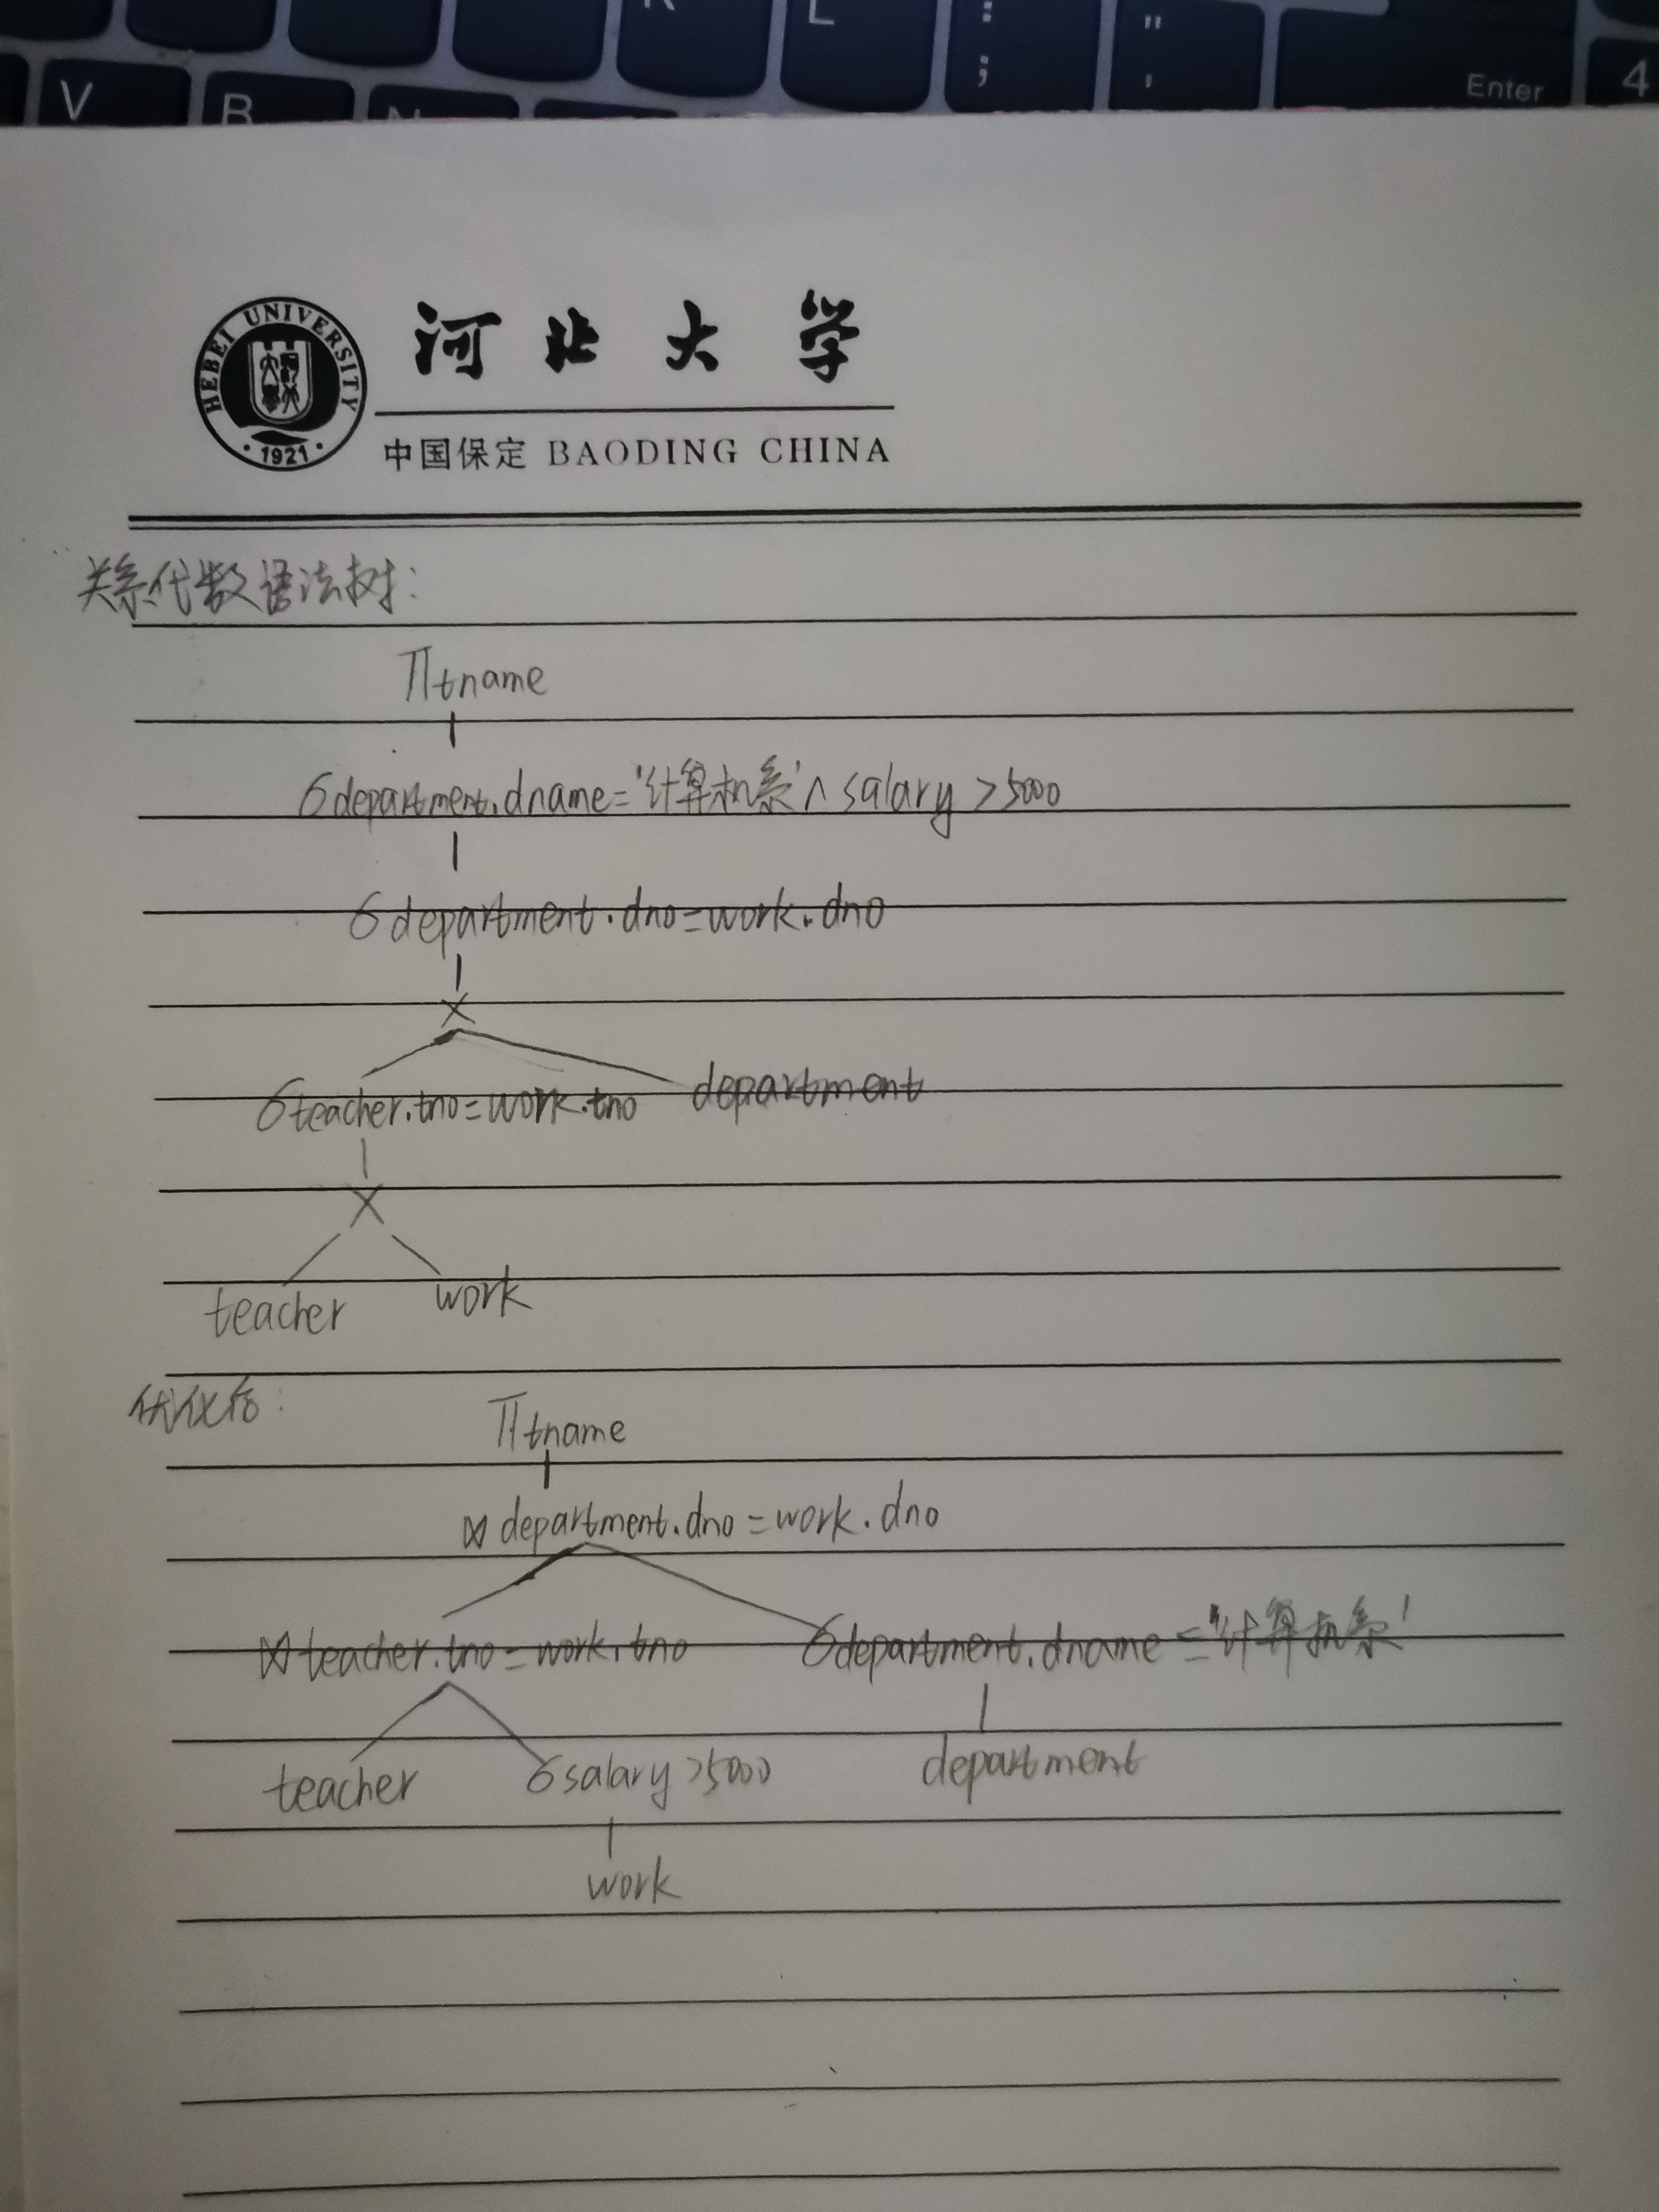 K L : ; " '
Enter 4
V B N
HEBEI UNIVERSITY
1921
河北大学
中国保定 BAODING CHINA
关系代数语法树:
Πtname
σdepartment.dname='计算机系'∧salary>5000
σdepartment.dno=work.dno
×
σteacher.tno=work.tno department
×
teacher work
优化后:
Πtname
⋈department.dno=work.dno
⋈teacher.tno=work.tno σdepartment.dname='计算机系'
teacher σsalary>5000 department
work